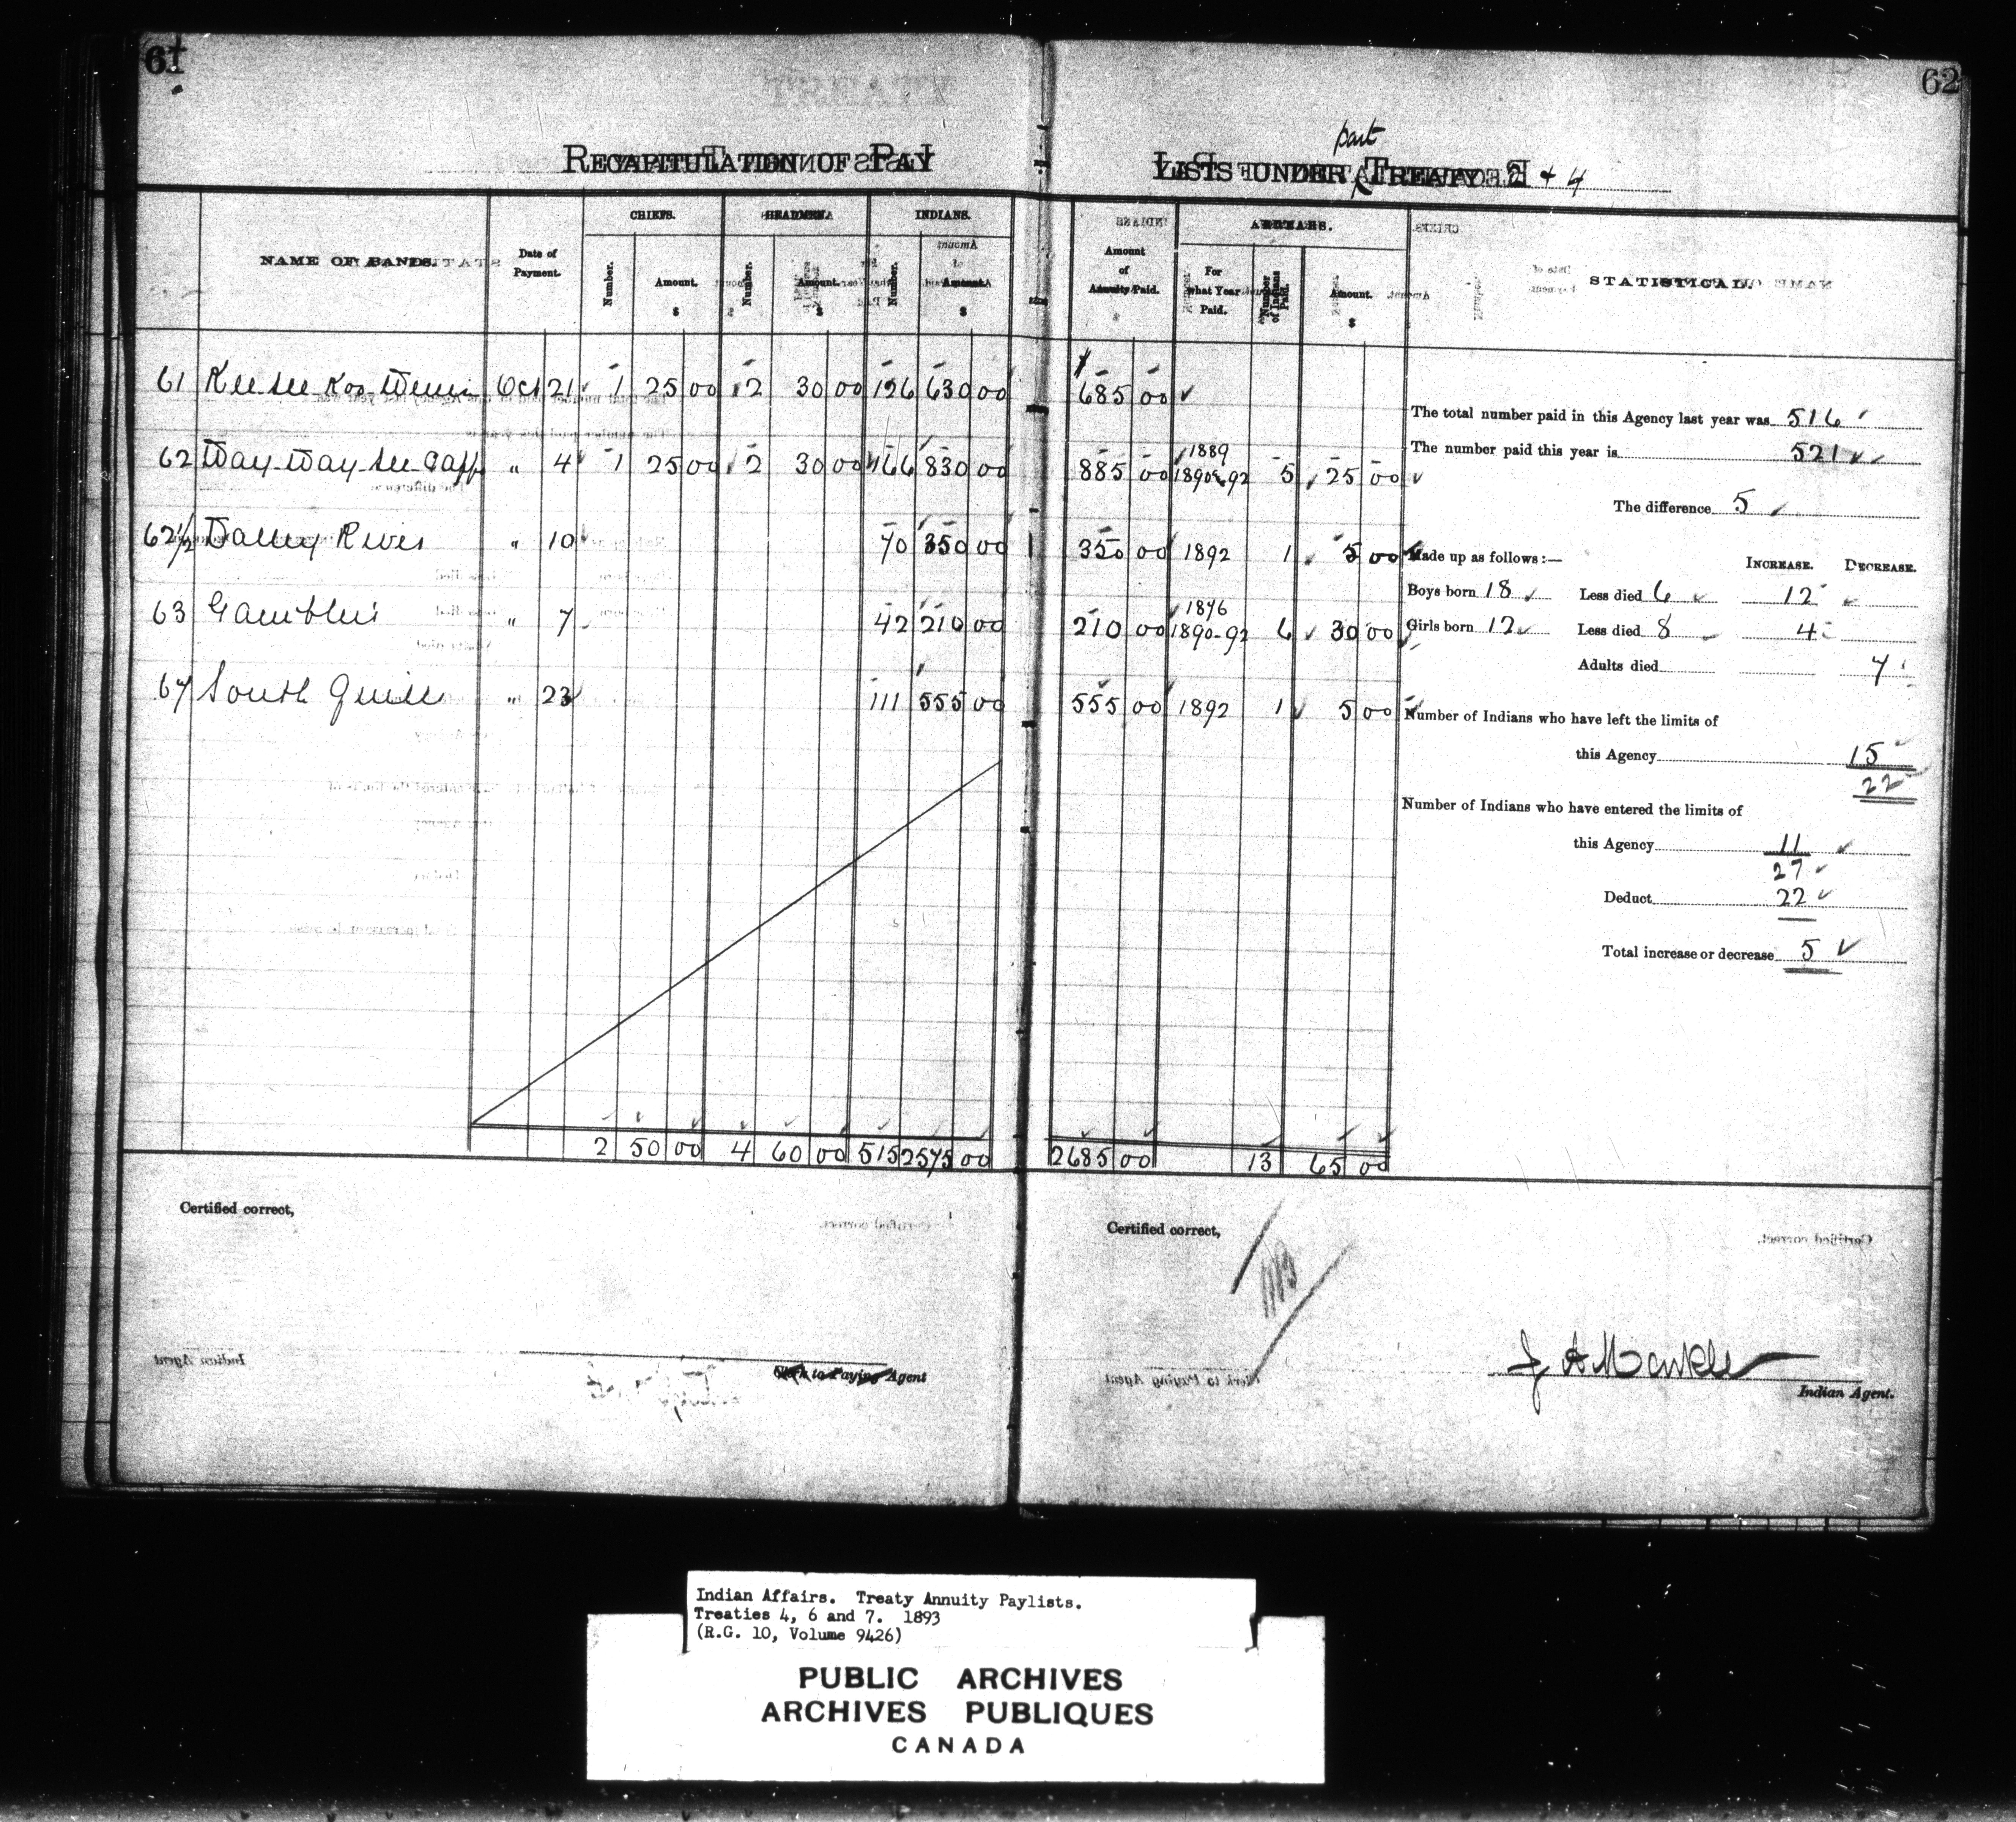 61
62
RECAPITULATION OF PAY LISTS UNDER part TREATY 2 + 4
NAME OF BANDS.
Date of Payment.
CHIEFS.
Number.
Amount.
$
HEADMEN.
Number.
Amount.
$
INDIANS.
Number.
Amount.
$
Amount of Annuity Paid.
ARREARS.
For what Year Paid.
Number of Indians Paid.
Amount.
$
STATISTICAL
61 Kee-see-Koo-Wenin Oct 21 1 25 00 2 30 00 126 630 00 $685 00
62 Way-Way-See-Capp " 4 1 25 00 2 30 00 166 830 00 885 00 1889 1890-92 5 25 00
62 1/2 Valley River " 10 70 350 00 350 00 1892 1 5 00
63 Gamblers " 7 42 210 00 210 00 1876 1890-92 6 30 00
67 South Quill " 23 111 555 00 555 00 1892 1 5 00
2 50 00 4 60 00 515 2575 00 2685 00 13 65 00
The total number paid in this Agency last year was 516
The number paid this year is 521
The difference 5
Made up as follows:— INCREASE. DECREASE.
Boys born 18 Less died 6 12
Girls born 12 Less died 8 4
Adults died 7
Number of Indians who have left the limits of
this Agency 15
22
Number of Indians who have entered the limits of
this Agency 11
27
Deduct 22
Total increase or decrease 5
Certified correct,
Clerk to Paying Agent
Certified correct,
J A Markle
Indian Agent.
Indian Affairs. Treaty Annuity Paylists.
Treaties 4, 6 and 7. 1893
(R.G. 10, Volume 9426)
PUBLIC ARCHIVES
ARCHIVES PUBLIQUES
CANADA